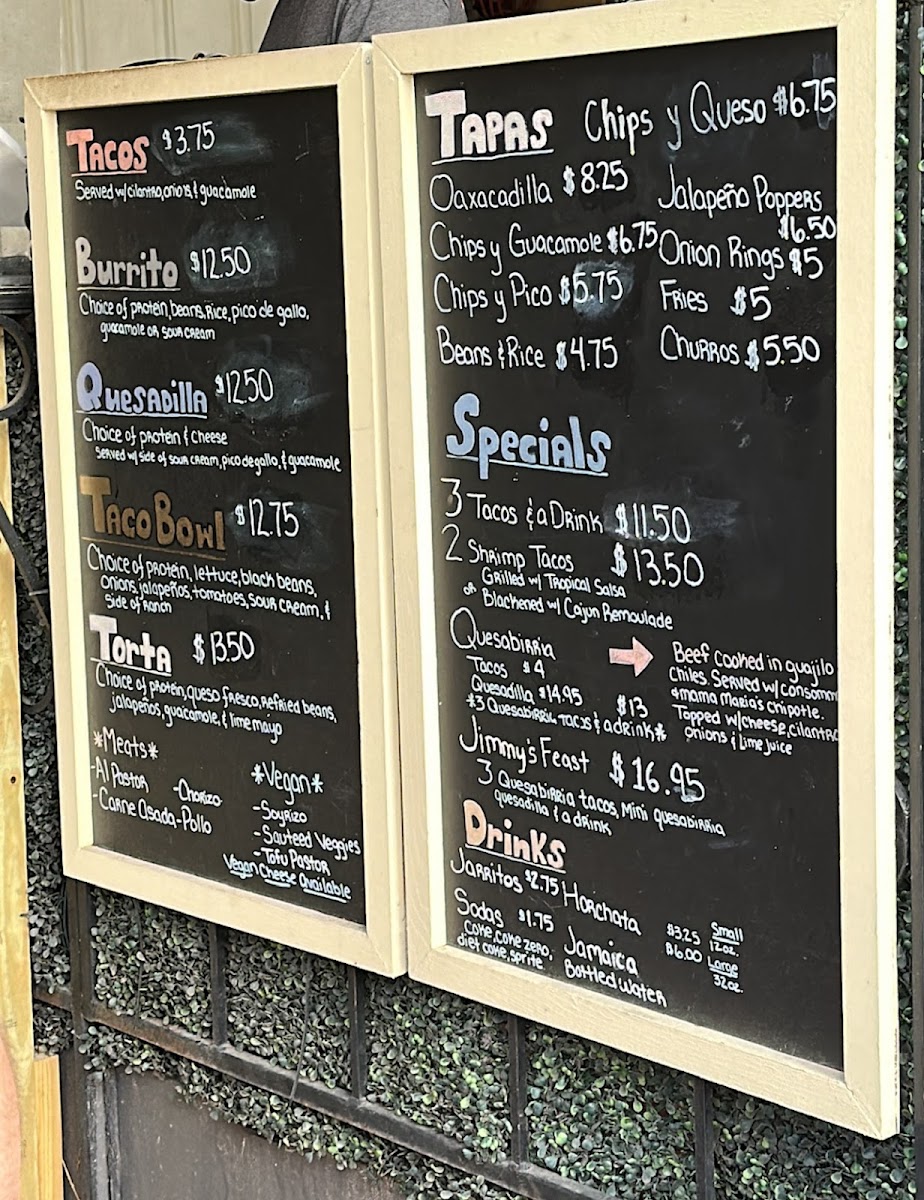 Tacos $3.75
Served w/cilantro,onions,& guacamole
Burrito $12.50
Choice of protein,beans,Rice,pico de gallo,
guacamole or sour cream
Quesadilla $12.50
Choice of protein & cheese
Served w/ side of sour cream, pico de gallo, & guacamole
Taco Bowl $12.75
Choice of protein, lettuce, black beans,
onions, jalapeños, tomatoes, sour cream, &
side of ranch
Torta $13.50
Choice of protein, queso fresco, refried beans,
jalapeños, guacamole, & lime mayo
*Meats*
-Al Pastor -Chorizo
-Carne Asada-Pollo
*Vegan*
-Soyrizo
-Sauteed Veggies
-Tofu Pastor
Vegan Cheese Available
Tapas Chips y Queso $6.75
Oaxacadilla $8.25
Chips y Guacamole $6.75
Chips y Pico $5.75
Beans & Rice $4.75
Jalapeño Poppers
$6.50
Onion Rings $5
Fries $5
Churros $5.50
Specials
3 Tacos & a Drink $11.50
2 Shrimp Tacos $13.50
Grilled w/ Tropical Salsa
or Blackened w/ Cajun Remoulade
Quesabirria
Tacos $4
Quesadilla $14.95
*3 Quesabirria tacos & a drink* $13
Beef cooked in guajillo
chiles. Served w/consomm
& mama Maria's chipotle.
Topped w/cheese, cilantro
onions & lime juice
Jimmy's Feast $16.95
3 Quesabirria tacos, mini quesabirria
quesadilla & a drink
Drinks
Jarritos $2.75
Sodas $1.75
Coke, Coke zero,
diet coke, sprite
Horchata
Jamaica
Bottled Water
$3.25 Small
12oz.
$6.00 Large
32oz.